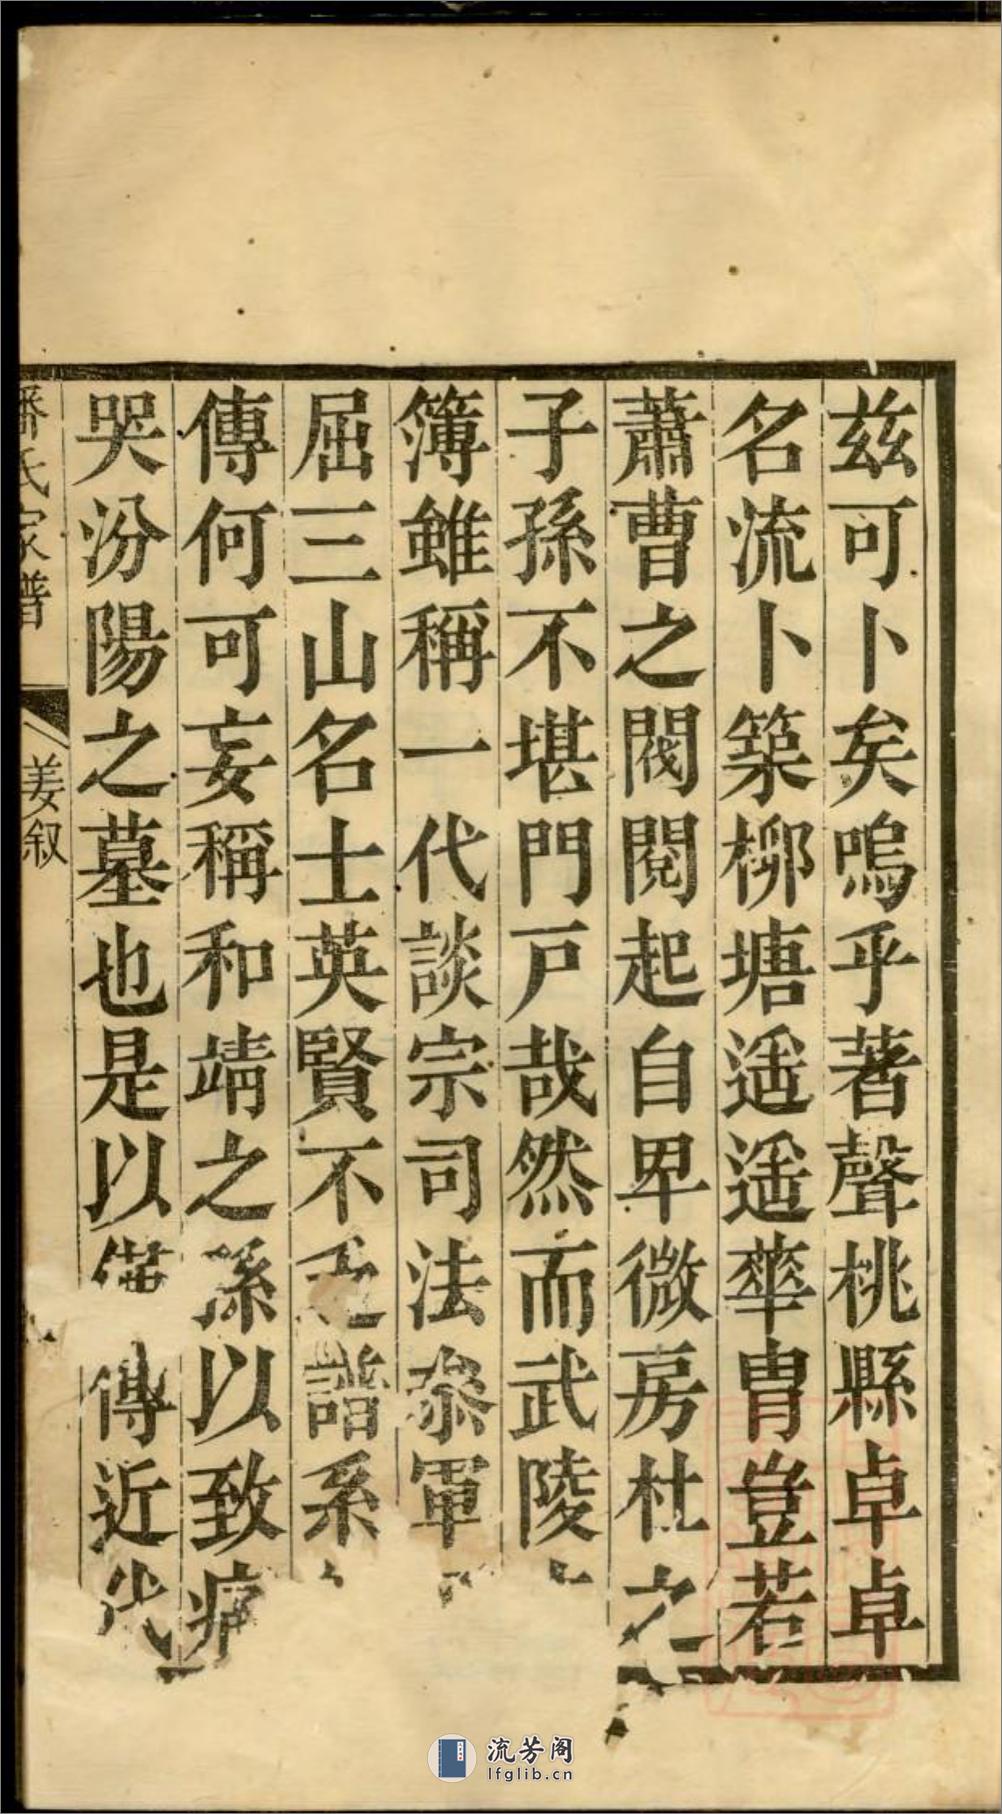 兹可卜矣嗚乎著聲桃縣卓卓
名流卜築柳塘遥遥華胄豈若
蕭曹之閥閱起自卑微房杜之
子孫不堪門戸哉然而武陵
簿雖稱一代談宗司法叅軍
屈三山名士英賢不譜系
傳何可妄稱和靖之孫以致
哭汾陽之墓也是以傳近代
潘氏家譜
姜叙
流芳阁
lfglib.cn